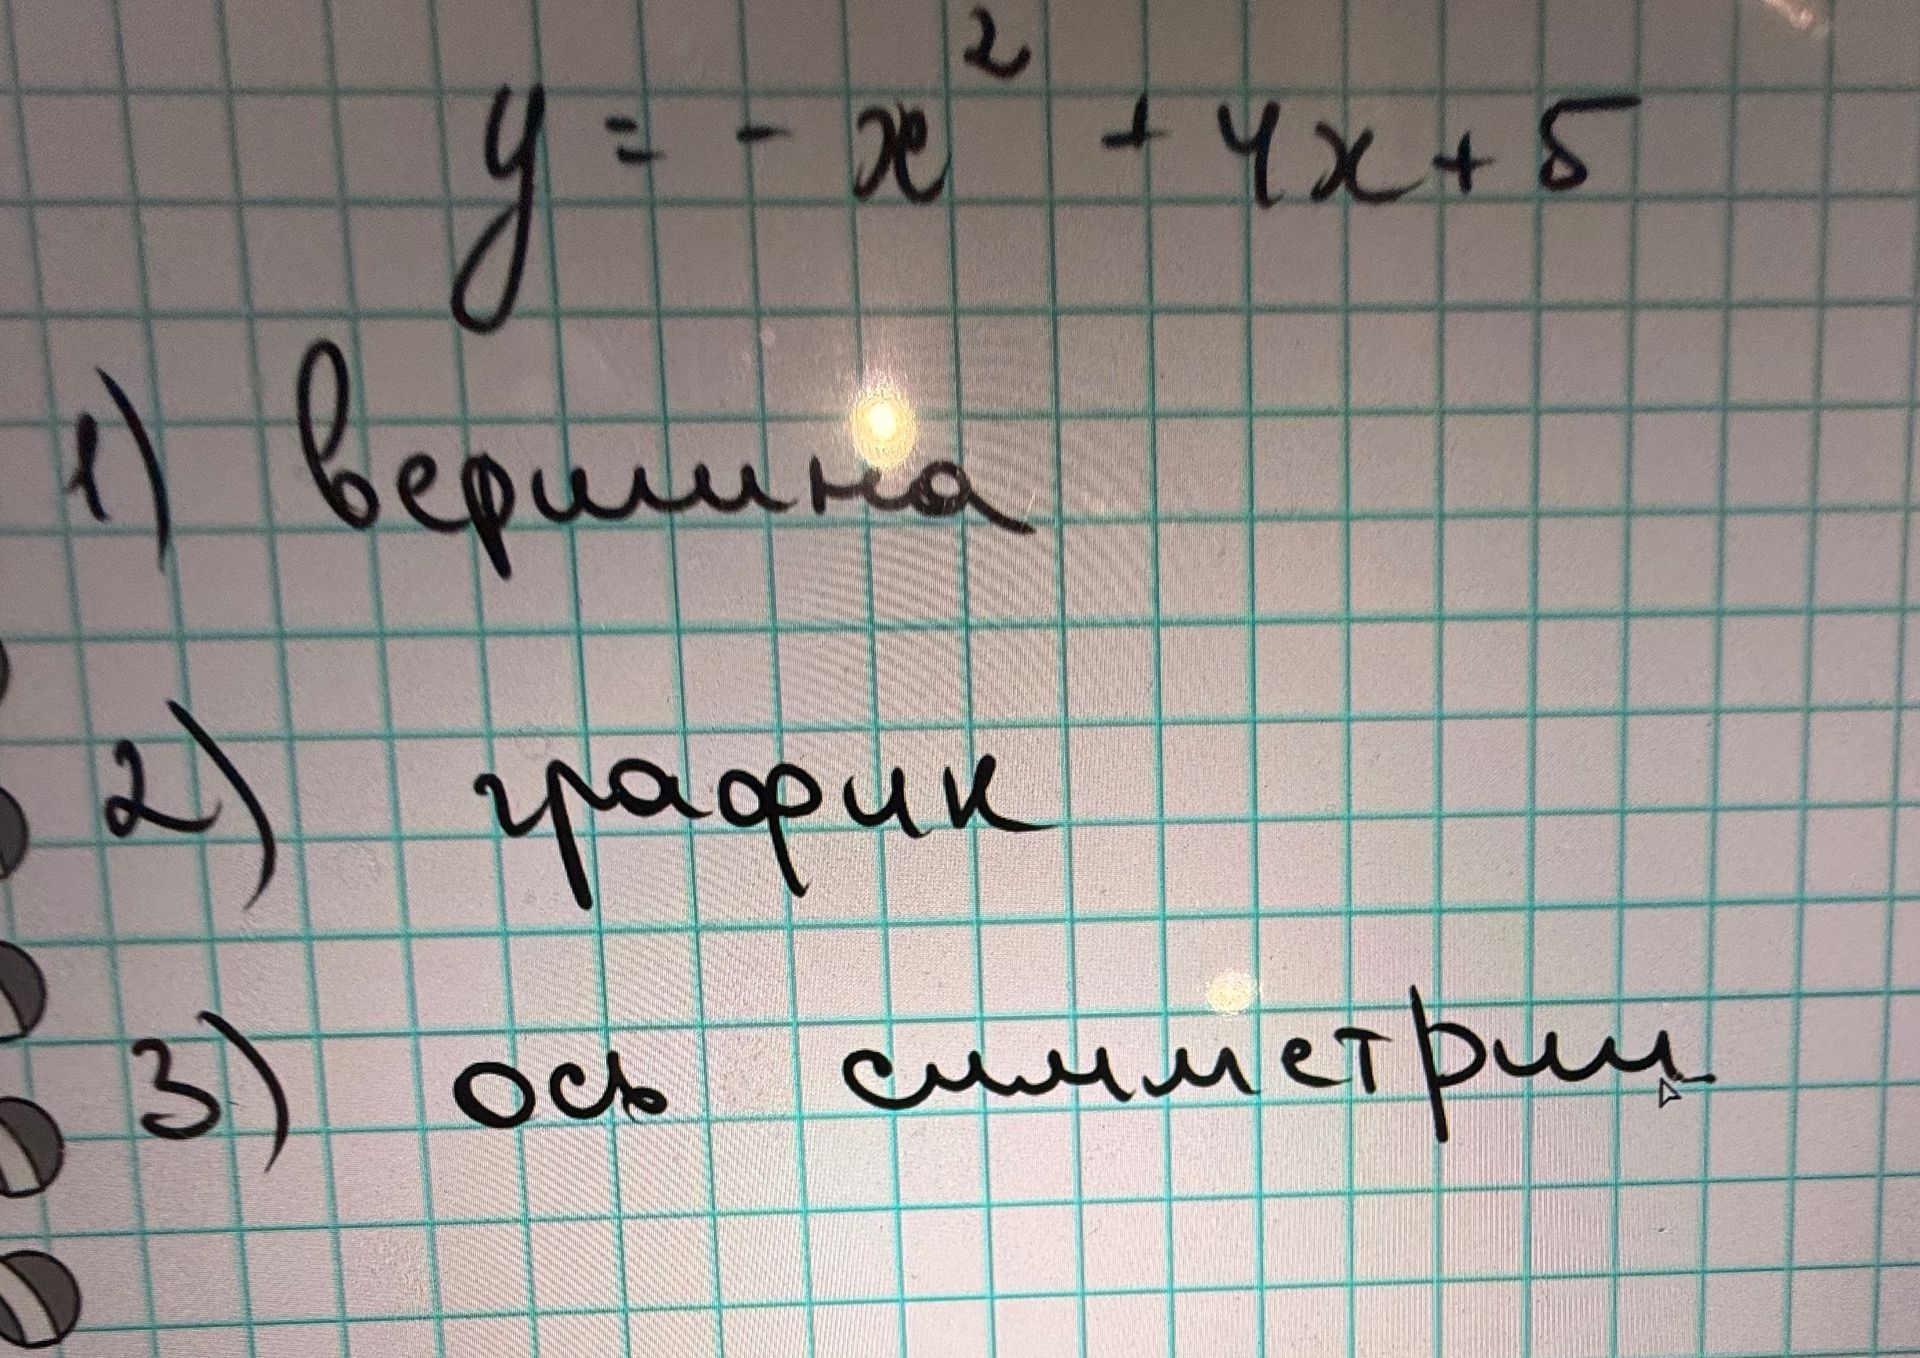 y = - x² + 4x + 5
1) вершина
2) график
3) ось симметрии